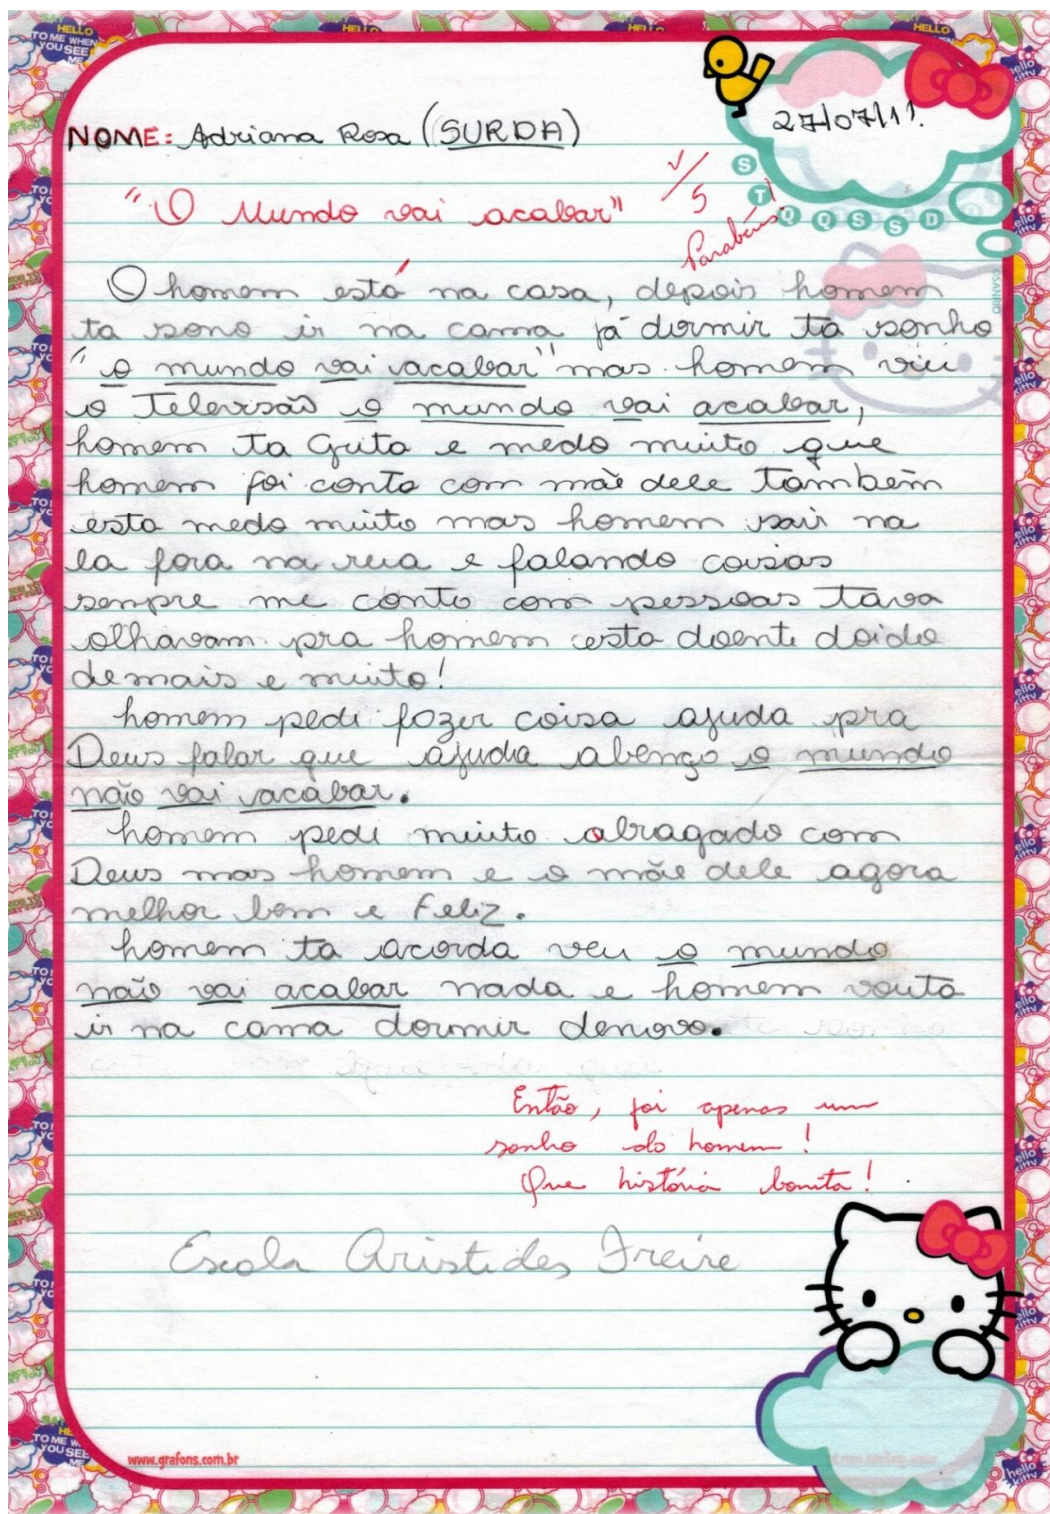 27/07/11.
NOME: Adriana Rosa (SURDA)
S T Q Q S S D
"O Mundo vai acabar"
√/5
Parabéns!
O homem está na casa, depois homem
ta sono ir na cama já dormir ta sonho
"o mundo vai acabar" mas homem viu
o Televisão o mundo vai acabar,
homem ta Grita e medo muito que
homem foi conta com mãe dele também
esta medo muito mas homem sair na
la fora na rua e falando coisas
sempre me conto com pessoas tava
olhavam pra homem esta doente doido
demais e muito!
homem pedi fazer coisa ajuda pra
Deus falar que ajuda abenço o mundo
não vai acabar.
homem pedi muito abragado com
Deus mas homem e o mãe dele agora
melhor bem e Feliz.
homem ta acorda veu o mundo
não vai acabar nada e homem vouta
ir na cama dormir denovo.
Então, foi apenas um
sonho do homem!
Que história bonita!
Escola Aristides Freire
www.grafons.com.br